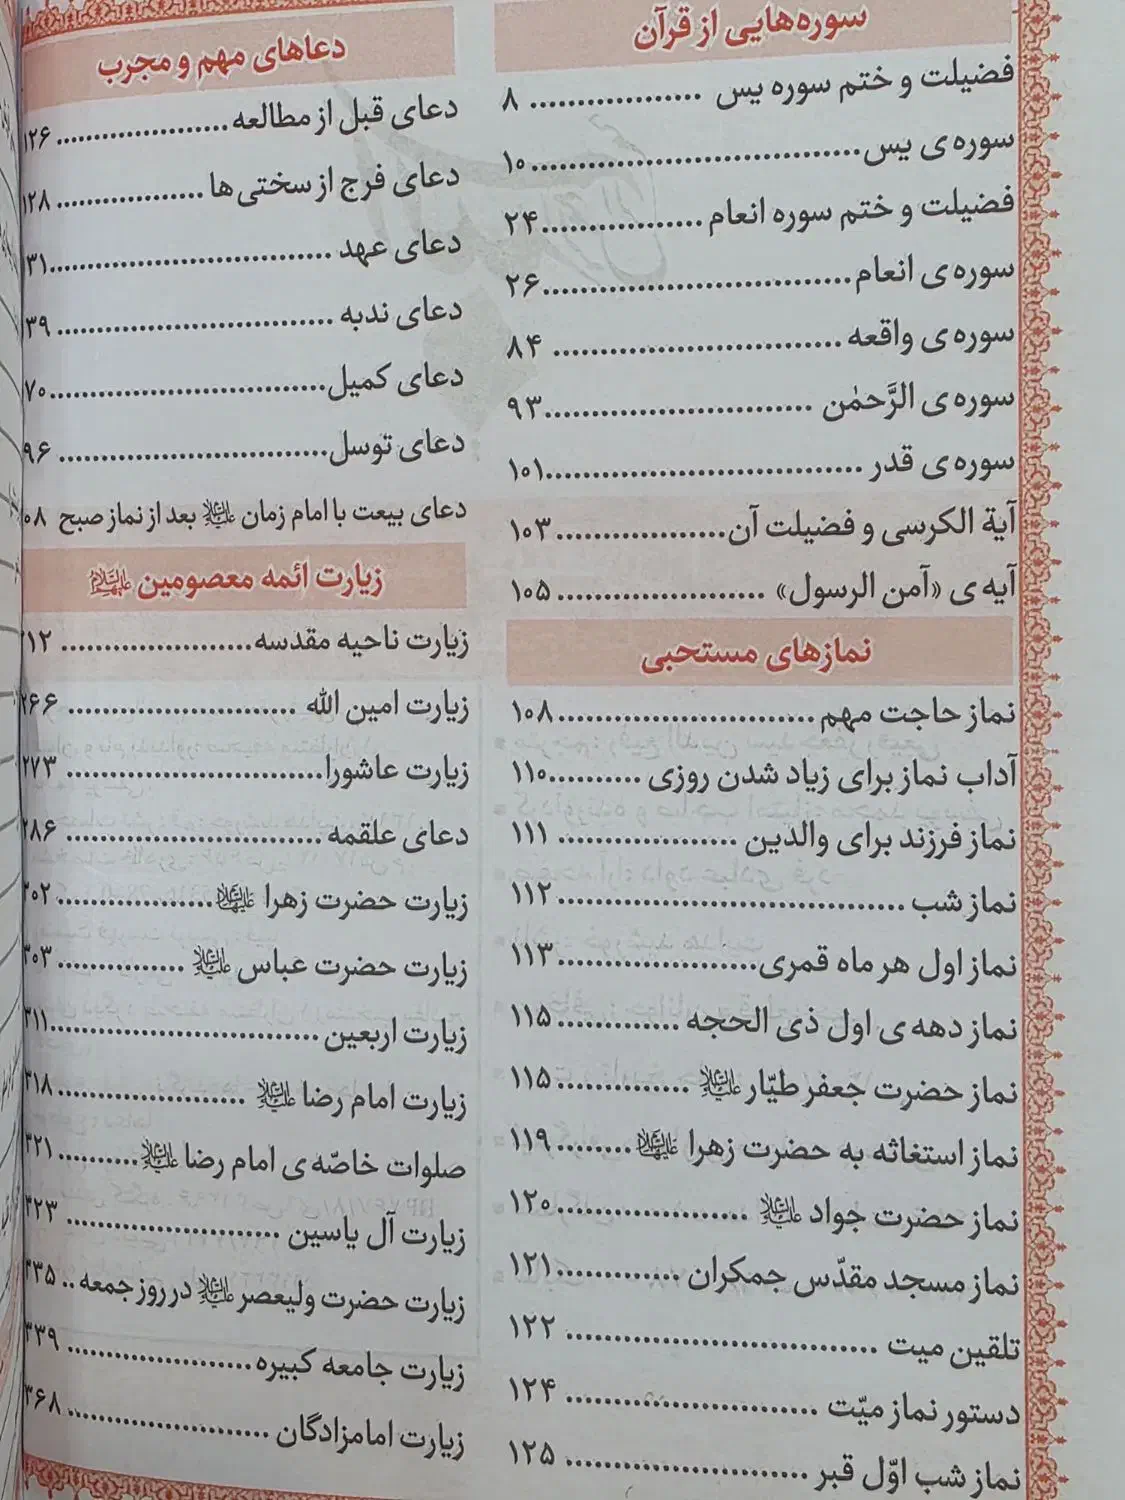 سوره‌هایی از قرآن
فضیلت و ختم سوره یس .................. ۸
سوره‌ی یس.................................. ۱۰
فضیلت و ختم سوره انعام .................۲۴
سوره‌ی انعام................................۲۶
سوره‌ی واقعه .............................. ۸۴
سوره‌ی الرَّحمٰن ............................۹۳
سوره‌ی قدر .................................۱۰۱
آیة الکرسی و فضیلت آن..................۱۰۳
آیه‌ی «آمن الرسول» ...................... ۱۰۵
نمازهای مستحبی
نماز حاجت مهم ...........................۱۰۸
آداب نماز برای زیاد شدن روزی ..........۱۱۰
نماز فرزند برای والدین ................... ۱۱۱
نماز شب .....................................۱۱۲
نماز اول هر ماه قمری.....................۱۱۳
نماز دهه‌ی اول ذی الحجه ............. ۱۱۵
نماز حضرت جعفر طیّار علیه‌السلام .............. ۱۱۵
نماز استغاثه به حضرت زهرا علیها‌السلام ........۱۱۹
نماز حضرت جواد علیه‌السلام ....................۱۲۰
نماز مسجد مقدّس جمکران .............۱۲۱
تلقین میت ................................. ۱۲۲
دستور نماز میّت .......................... ۱۲۴
نماز شب اوّل قبر ......................... ۱۲۵
دعاهای مهم و مجرب
دعای قبل از مطالعه .................... ۱۲۶
دعای فرج از سختی ها ................. ۱۲۸
دعای عهد ..............................۳۱
دعای ندبه ............................. ۳۹
دعای کمیل.............................۷۰
دعای توسل............................. ۹۶
دعای بیعت با امام زمان علیه‌السلام بعد از نماز صبح ۰۸
زیارت ائمه معصومین علیهم‌السلام
زیارت ناحیه مقدسه....................... ۲۱۲
زیارت امین الله ......................... ۲۶۶
زیارت عاشورا........................... ۲۷۳
دعای علقمه ............................ ۲۸۶
زیارت حضرت زهرا علیها‌السلام................. ۳۰۲
زیارت حضرت عباس علیه‌السلام .............. ۳۰۳
زیارت اربعین .............................۳۱۱
زیارت امام رضا علیه‌السلام .................... ۳۱۸
صلوات خاصّه‌ی امام رضا علیه‌السلام.......... ۳۲۱
زیارت آل یاسین ........................ ۳۲۳
زیارت حضرت ولیعصر علیه‌السلام در روز جمعه .. ۳۳۵
زیارت جامعه کبیره.................... ۳۳۹
زیارت امامزادگان ...................... ۳۶۸